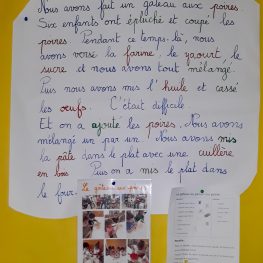 Nous avons fait un gâteau aux poires.
Six enfants ont épluché et coupé les
poires. Pendant ce temps-là, nous
avons versé la farine, le yaourt, le
sucre et nous avons tout mélangé.
Puis nous avons mis l'huile et cassé
les oeufs. C'était difficile.
Et on a ajouté les poires. Nous avons
mélangé un par un. Nous avons mis
la pâte dans le plat avec une cuillère
en bois. Puis on a mis le plat dans
le four.